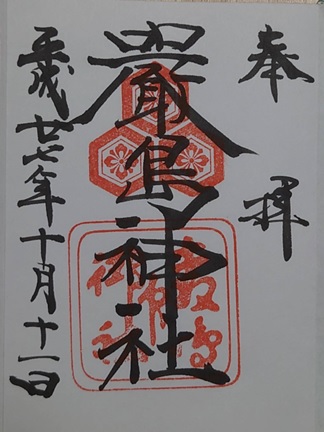 奉拝
嚴島神社
平成廿七年十月十一日